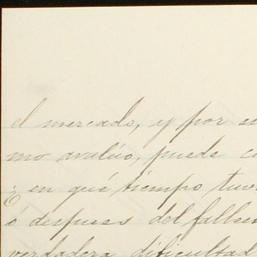 el mercado, y por su
mo avalúo, puede c
¿en qué tiempo tuv
é despues del fallec
verdadera dificultad